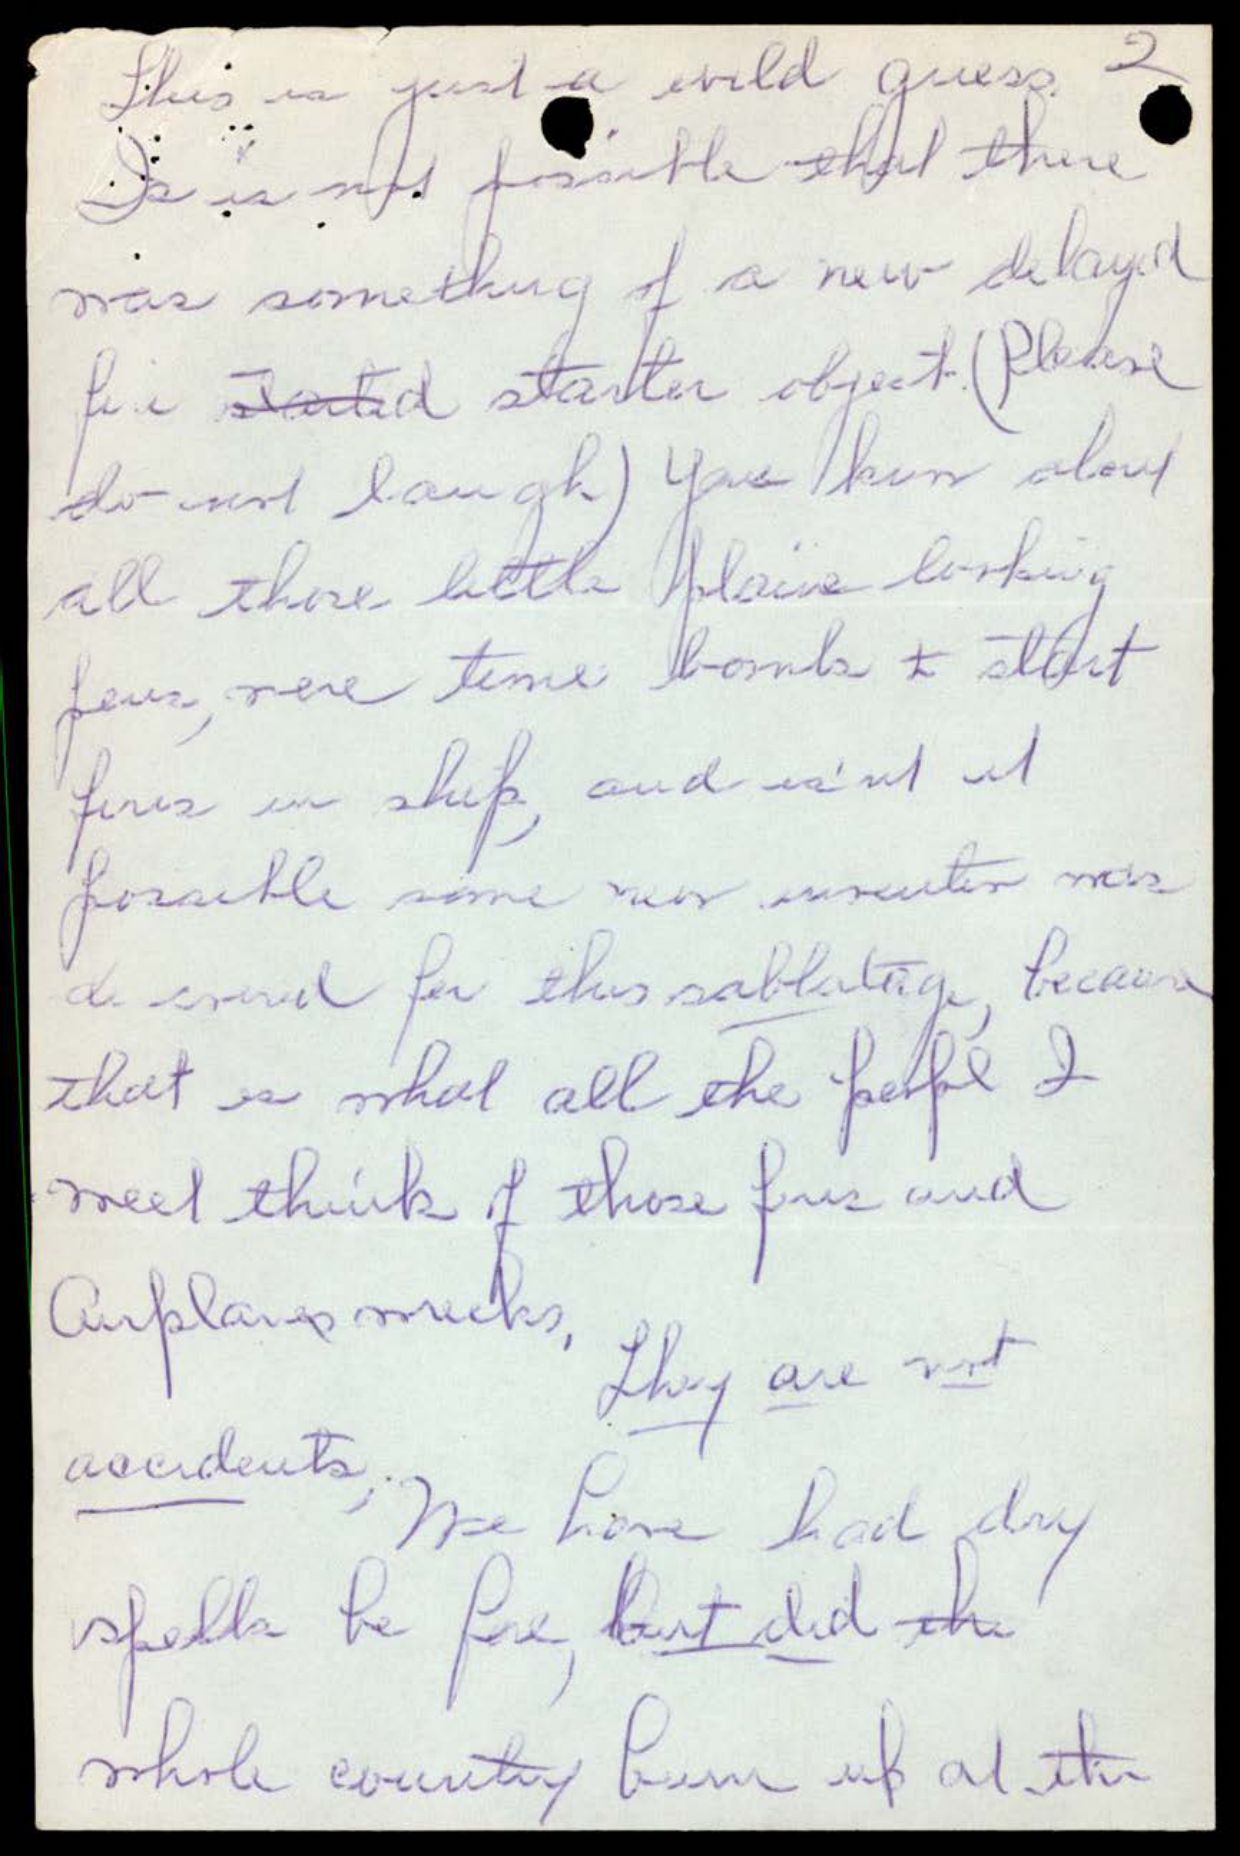 2
This is just a wild guess.
Is is not possible that there
was something of a new delayed
fire started starter object. (Please
do not laugh) You know about
all those little plane looking
pens, were time bombs to start
fires in ship, and is'nt it
possible some new invention was
de for this sabbatage, because
that is what all the peopl I
meet think of those fires and
Airplanes wrecks,
They are not
accidents,
We have had dry
spells be fore, but did the
whole country burn up at the